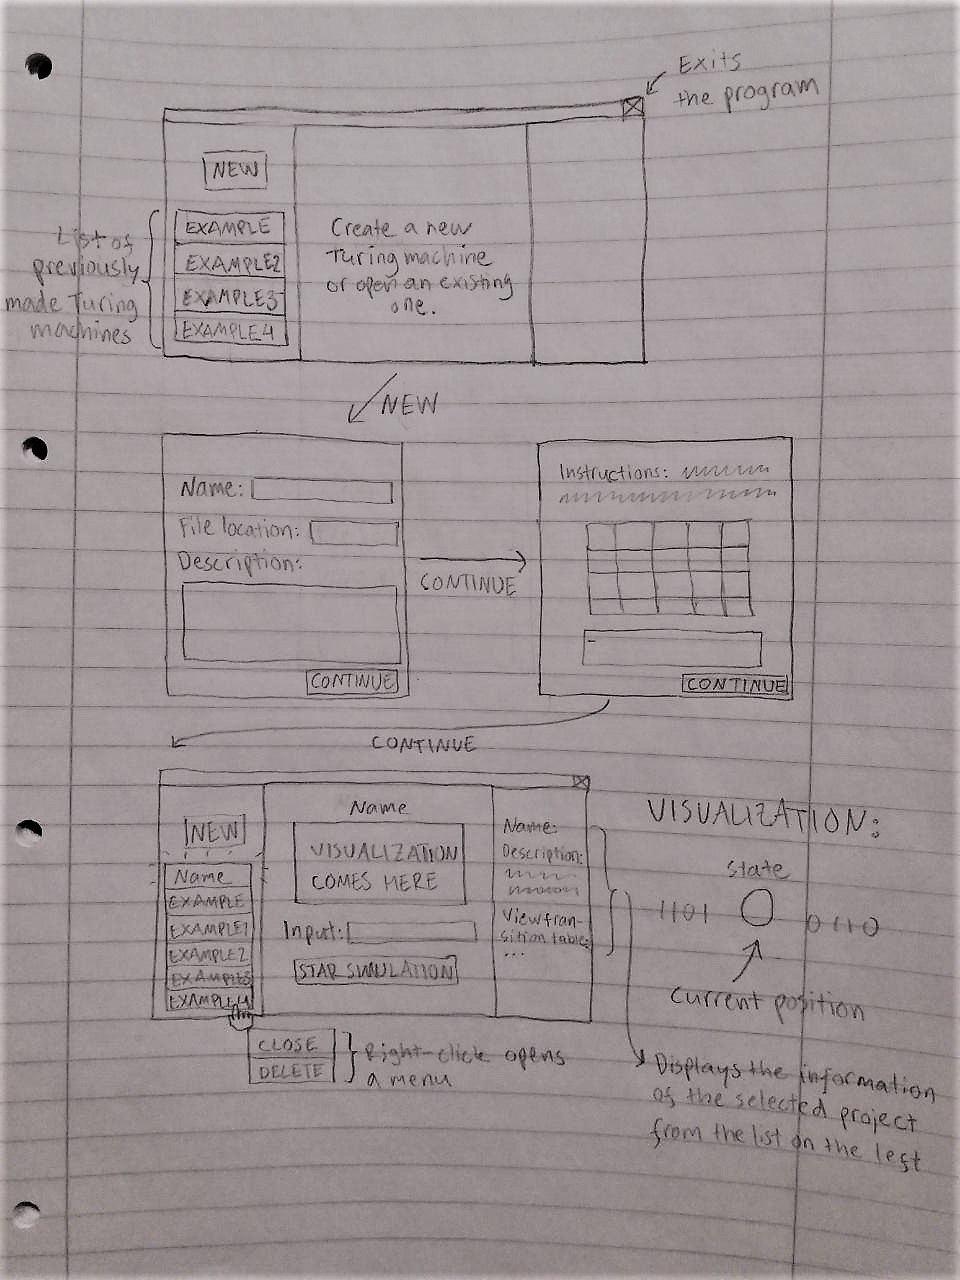 Exits
the program
NEW
List of
previously
made Turing
machines
EXAMPLE
EXAMPLE2
EXAMPLE3
EXAMPLE4
Create a new
Turing machine
or open an existing
one.
NEW
Name:
File location:
Description:
CONTINUE
CONTINUE
Instructions:
CONTINUE
CONTINUE
NEW
Name
EXAMPLE
EXAMPLE1
EXAMPLE2
EXAMPLE3
EXAMPLE4
Name
VISUALIZATION
COMES HERE
Input:
STAR SIMULATION
Name:
Description:
View tran-
sition table:
...
CLOSE
DELETE
Right-click opens
a menu
VISUALIZATION:
state
1101
0110
Current position
Displays the information
of the selected project
from the list on the left